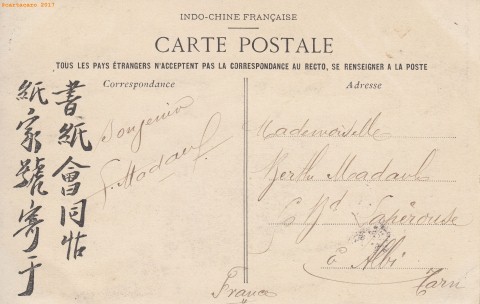 ©cartacaro 2017
INDO-CHINE FRANÇAISE
CARTE POSTALE
TOUS LES PAYS ÉTRANGERS N'ACCEPTENT PAS LA CORRESPONDANCE AU RECTO, SE RENSEIGNER A LA POSTE
Correspondance
書紙會同
紙家號寄于
Souvenir
G. Madaul
Adresse
Mademoiselle
Berthe Madaul
Bd Lapérouse
à Albi
Tarn
France